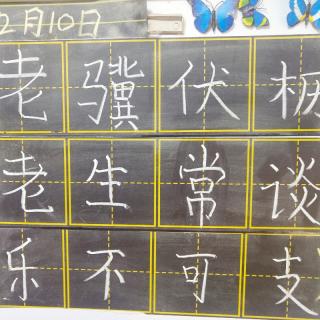 2月10日
老骥伏枥
老生常谈
乐不可支